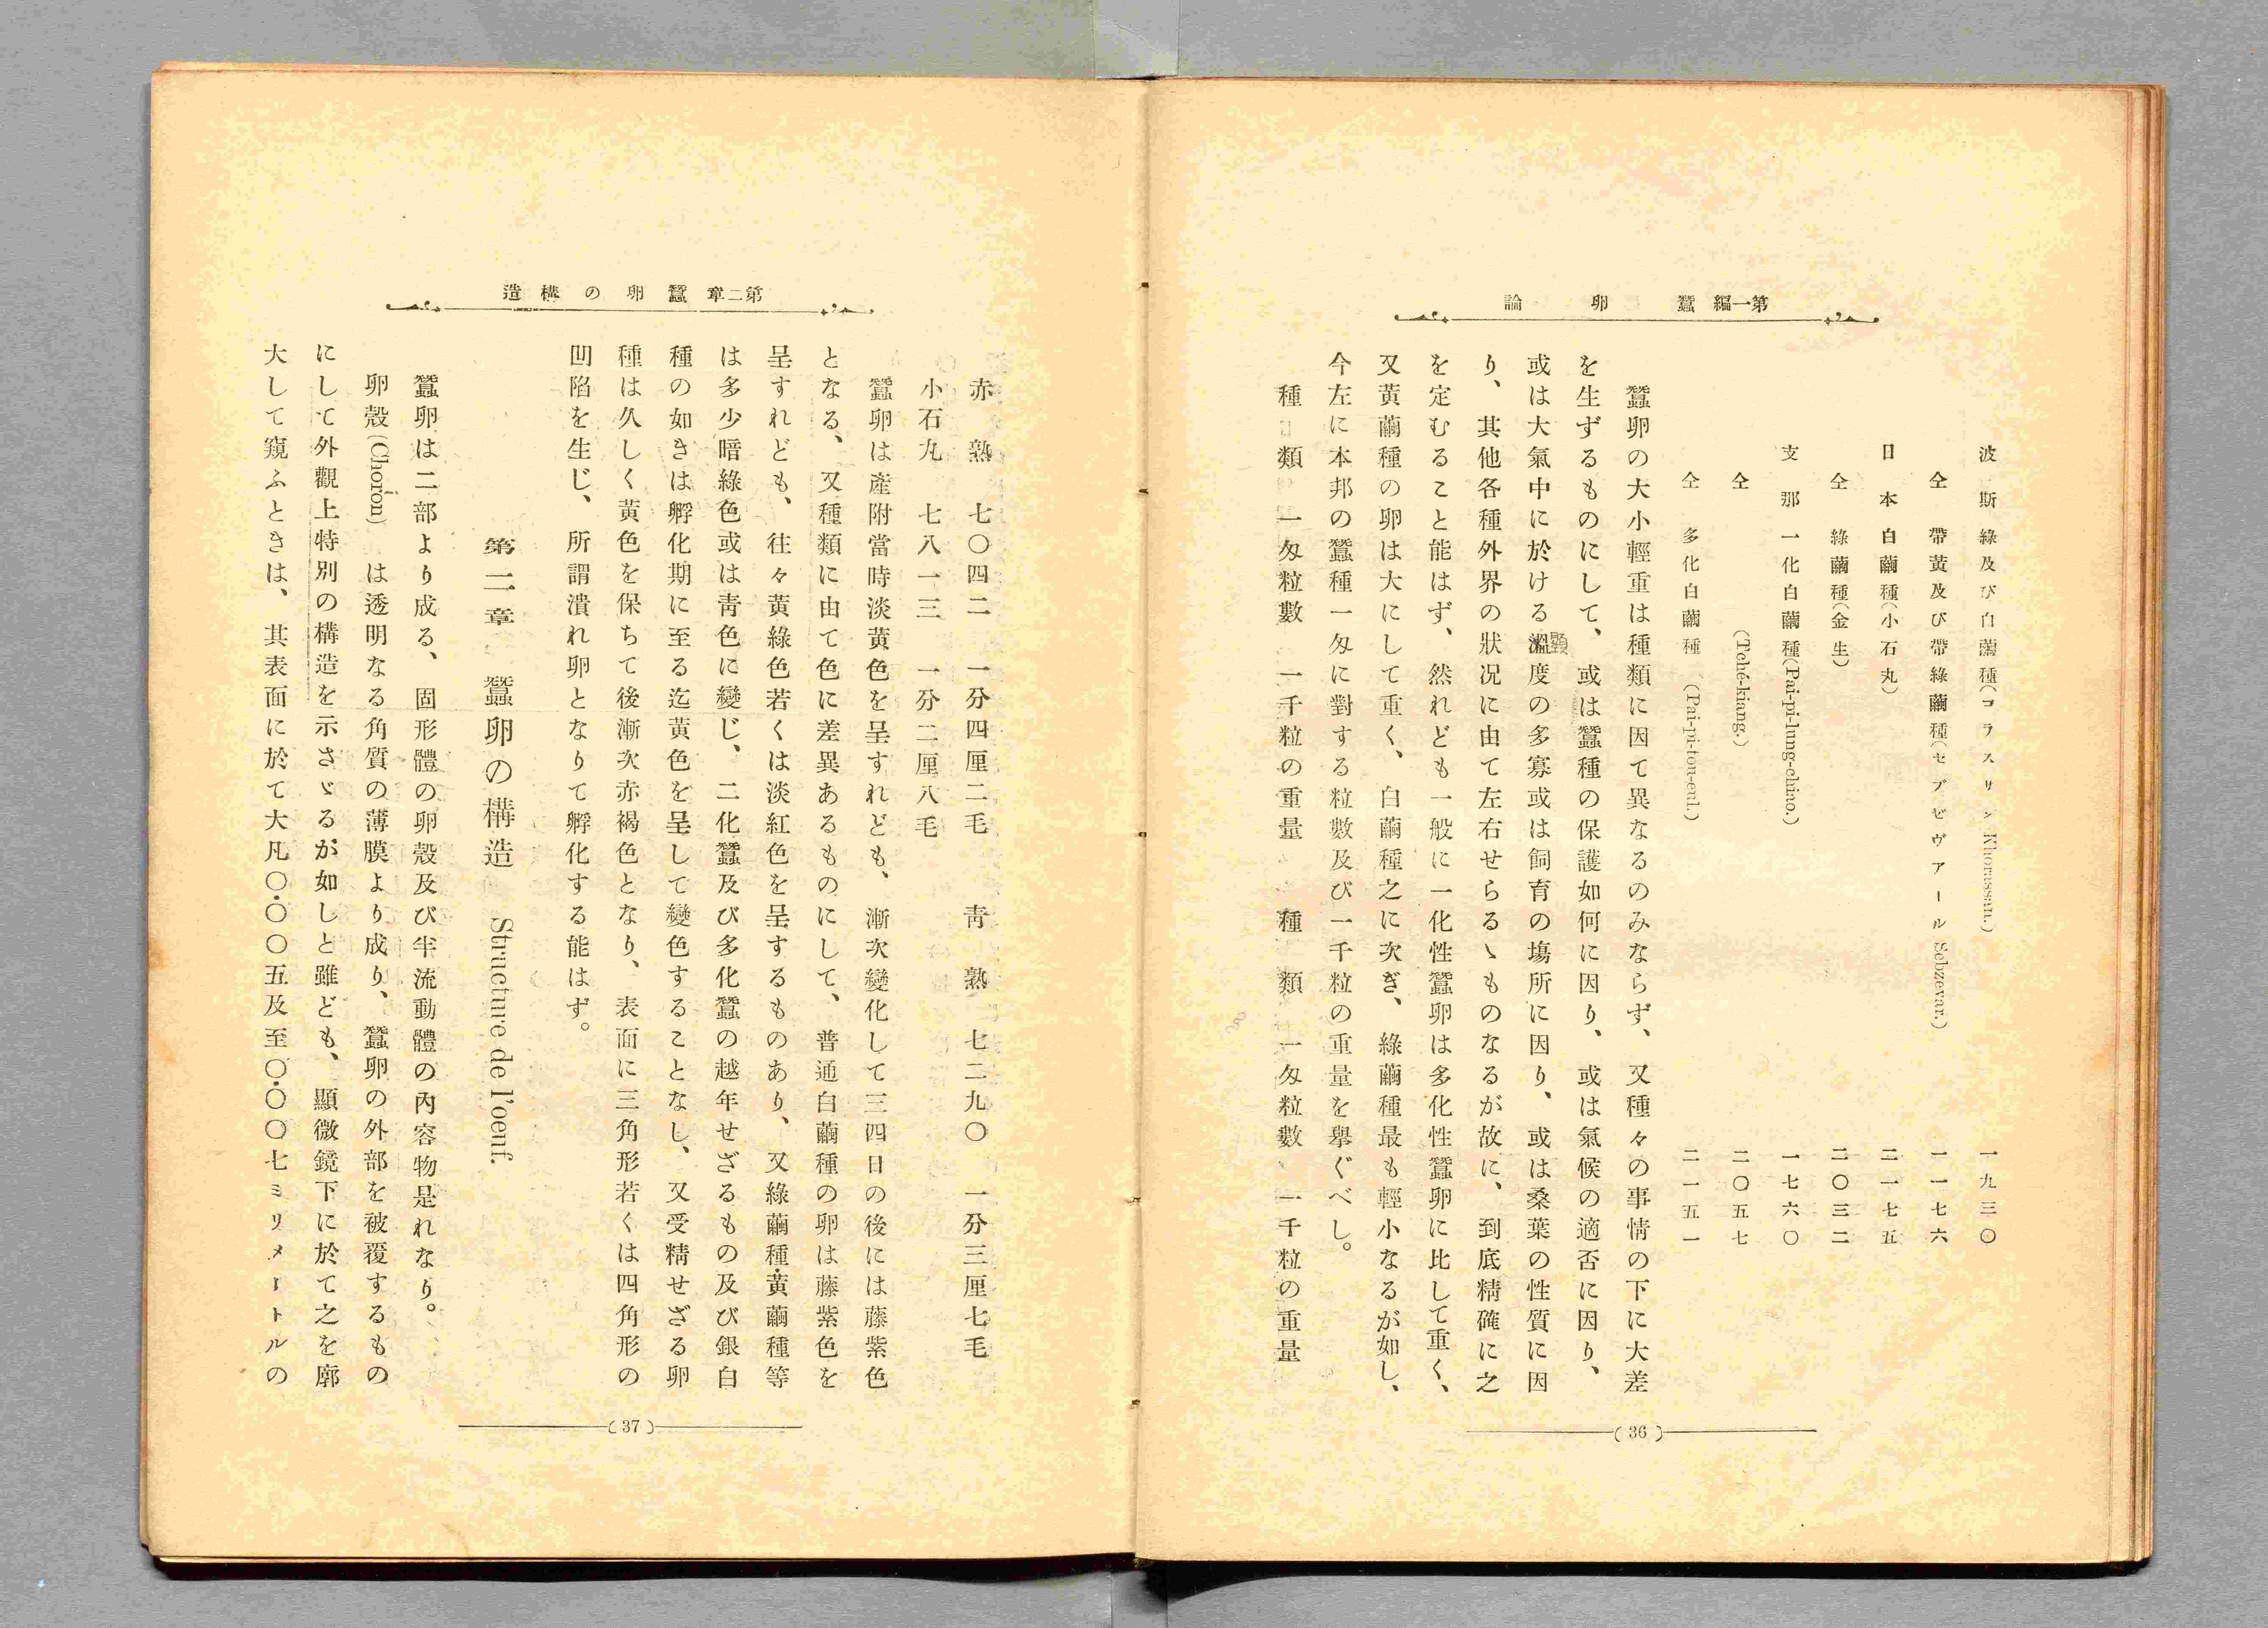 第一編 蠶卵論
波斯 綠及び白繭種(コラスサン Khorassan.) 一九三〇
仝 帶黃及び帶綠繭種(セブゼヴアール Sebzevar.) 一一七六
日本 白繭種(小石丸) 二一七五
仝 綠繭種(金生) 二〇三二
支那 一化白繭種(Pai-pi-lung-chiao.) 一七六〇
仝 (Tché-kiang.) 二〇五七
仝 多化白繭種 (Pai-pi-tou-eul.) 二一五一
蠶卵の大小輕重は種類に因て異なるのみならず、又種々の事情の下に大差
を生ずるものにして、或は蠶種の保護如何に因り、或は氣候の適否に因り、
或は大氣中に於ける溫度の多寡或は飼育の塲所に因り、或は桑葉の性質に因
り、其他各種外界の狀况に由て左右せらるゝものなるが故に、到底精確に之
を定むること能はず、然れども一般に一化性蠶卵は多化性蠶卵に比して重く、
又黃繭種の卵は大にして重く、白繭種之に次ぎ、綠繭種最も輕小なるが如し、
今左に本邦の蠶種一匁に對する粒數及び一千粒の重量を擧ぐべし。
種類 一匁粒數 一千粒の重量 種類 一匁粒數 一千粒の重量
(36)
第二章 蠶卵の構造
赤熟 七〇四二 一分四厘二毛 靑熟 七二九〇 一分三厘七毛
小石丸 七八一三 一分二厘八毛
蠶卵は產附當時淡黃色を呈すれども、漸次變化して三四日の後には藤紫色
となる、又種類に由て色に差異あるものにして、普通白繭種の卵は藤紫色を
呈すれども、往々黃綠色若くは淡紅色を呈するものあり、又綠繭種・黃繭種等
は多少暗綠色或は靑色に變じ、二化蠶及び多化蠶の越年せざるもの及び銀白
種の如きは孵化期に至る迄黃色を呈して變色することなし、又受精せざる卵
種は久しく黃色を保ちて後漸次赤褐色となり、表面に三角形若くは四角形の
凹陷を生じ、所謂潰れ卵となりて孵化する能はず。
第二章 蠶卵の構造 Structure de l'oeuf.
蠶卵は二部より成る、固形體の卵殼及び半流動體の內容物是れなり。
卵殼(Choróon)は透明なる角質の薄膜より成り、蠶卵の外部を被覆するもの
にして外觀上特別の構造を示さゞるが如しと雖ども、顯微鏡下に於て之を廓
大して窺ふときは、其表面に於て大凡〇・〇〇五及至〇・〇〇七ミリメートルの
(37)